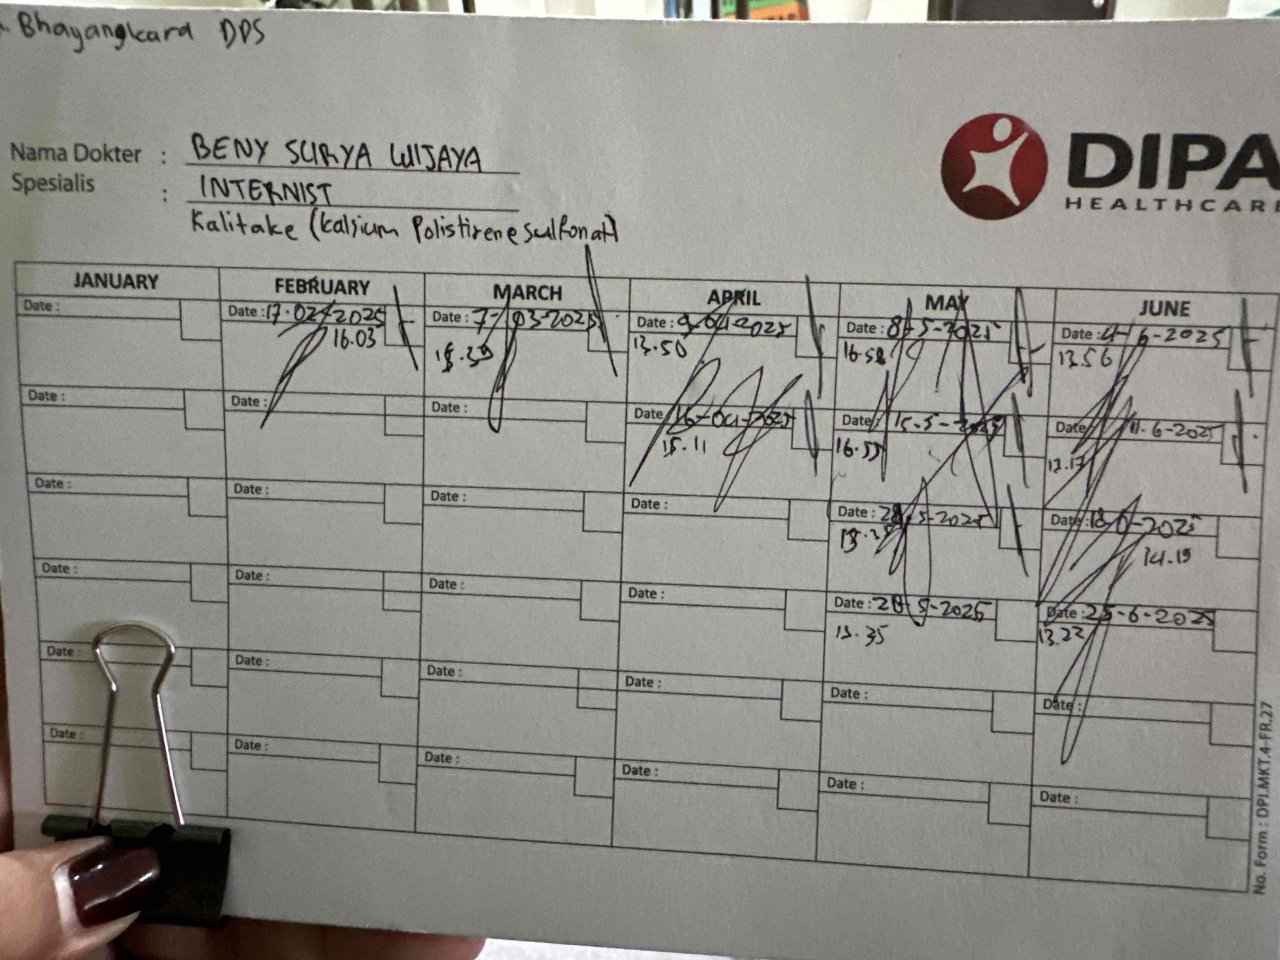 Bhayangkara DPS
DIPA
HEALTHCARE
Nama Dokter : BENY SURYA WIJAYA
Spesialis : INTERNIST
Kalitake (Kalsium Polistirene sulfonat)
JANUARY FEBRUARY MARCH APRIL MAY JUNE
Date : Date : 17-02-2025 Date : 7-03-2025 Date : 9-04-2025 Date : 8-5-2025 Date : 4-6-2025
16.03 13.50 16.58 13.56
Date : Date : Date : Date 16-04-2025 Date 15-5-2025 Date 11-6-2025
15.11 16.55 13.17
Date : Date : Date : Date : Date : 28-5-2025 Date : 18-6-2025
14.19
Date : Date : Date : Date : Date : 28-5-2025 Date : 25-6-2025
13.35 13.22
Date : Date : Date : Date : Date : Date :
Date : Date : Date : Date : Date : Date :
No. Form : DPI.MKT.4-FR.27